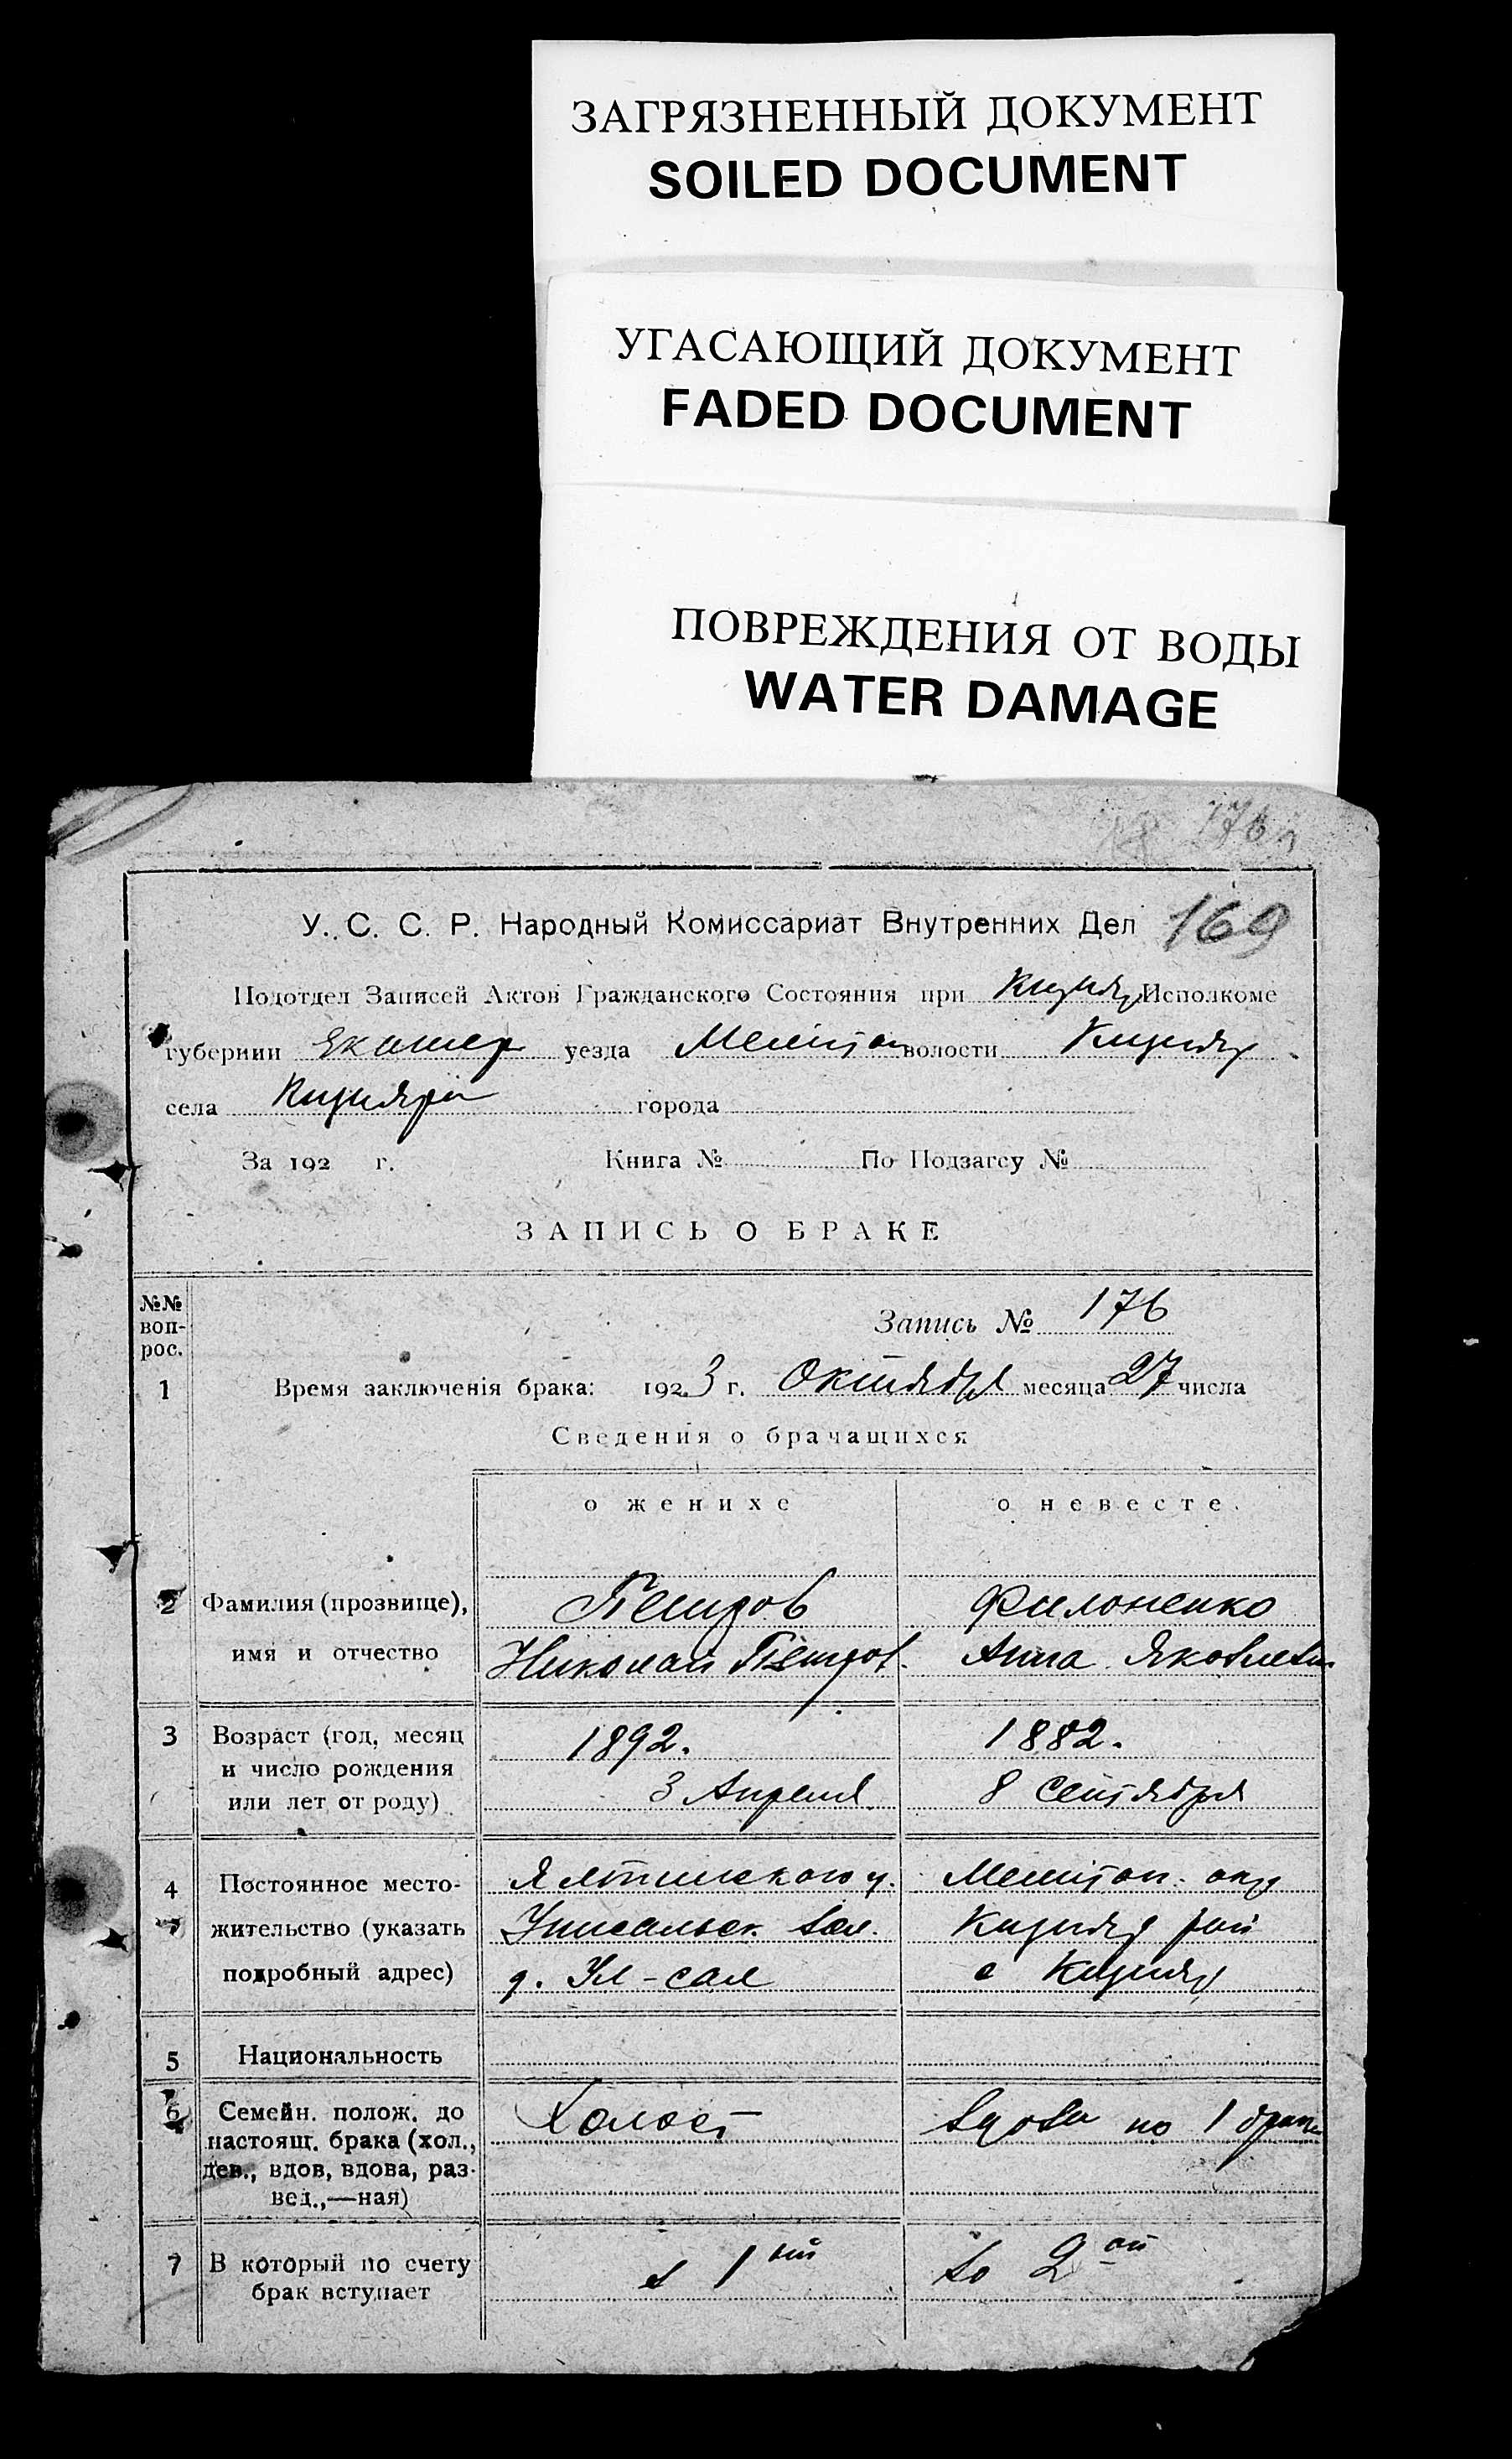 ЗАГРЯЗНЕННЫЙ ДОКУМЕНТ
SOILED DOCUMENT
УГАСАЮЩИЙ ДОКУМЕНТ
FADED DOCUMENT
ПОВРЕЖДЕНИЯ ОТ ВОДЫ
WATER DAMAGE
176
У. С. С. Р. Народный Комиссариат Внутренних Дел 169
Подотдел Записей Актов Гражданского Состояния при Кизияр Исполкоме
губернии Екатер уезда Мелитоп волости Кизияр
села Кизияри города
За 192 г. Книга № По Подзагсу №
ЗАПИСЬ О БРАКЕ
№№ вопрос.
Запись № 176
1 Время заключенія брака: 1923 г. Октября месяца 27 числа
Сведения о брачащихся
о женихе о невесте.
2 Фамилия (прозвище), Петров Филоненко
имя и отчество Николай Петров. Анна Яковлевн
3 Возраст (год, месяц 1892. 1882.
и число рождения
или лет от роду) 3 Апреля 8 Сентября
4 Постоянное место- Ялтинского у. Мелитоп. окр
жительство (указать вол. Кизияр рай
подробный адрес) д. Ул-сал с Кизияр
5 Национальность
6 Семейн. полож. до Холост вдова по 1 браку
настоящ. брака (хол.,
дев., вдов, вдова, раз-
вед.,—ная)
7 В который по счету в 1ый во 2ой
брак вступает